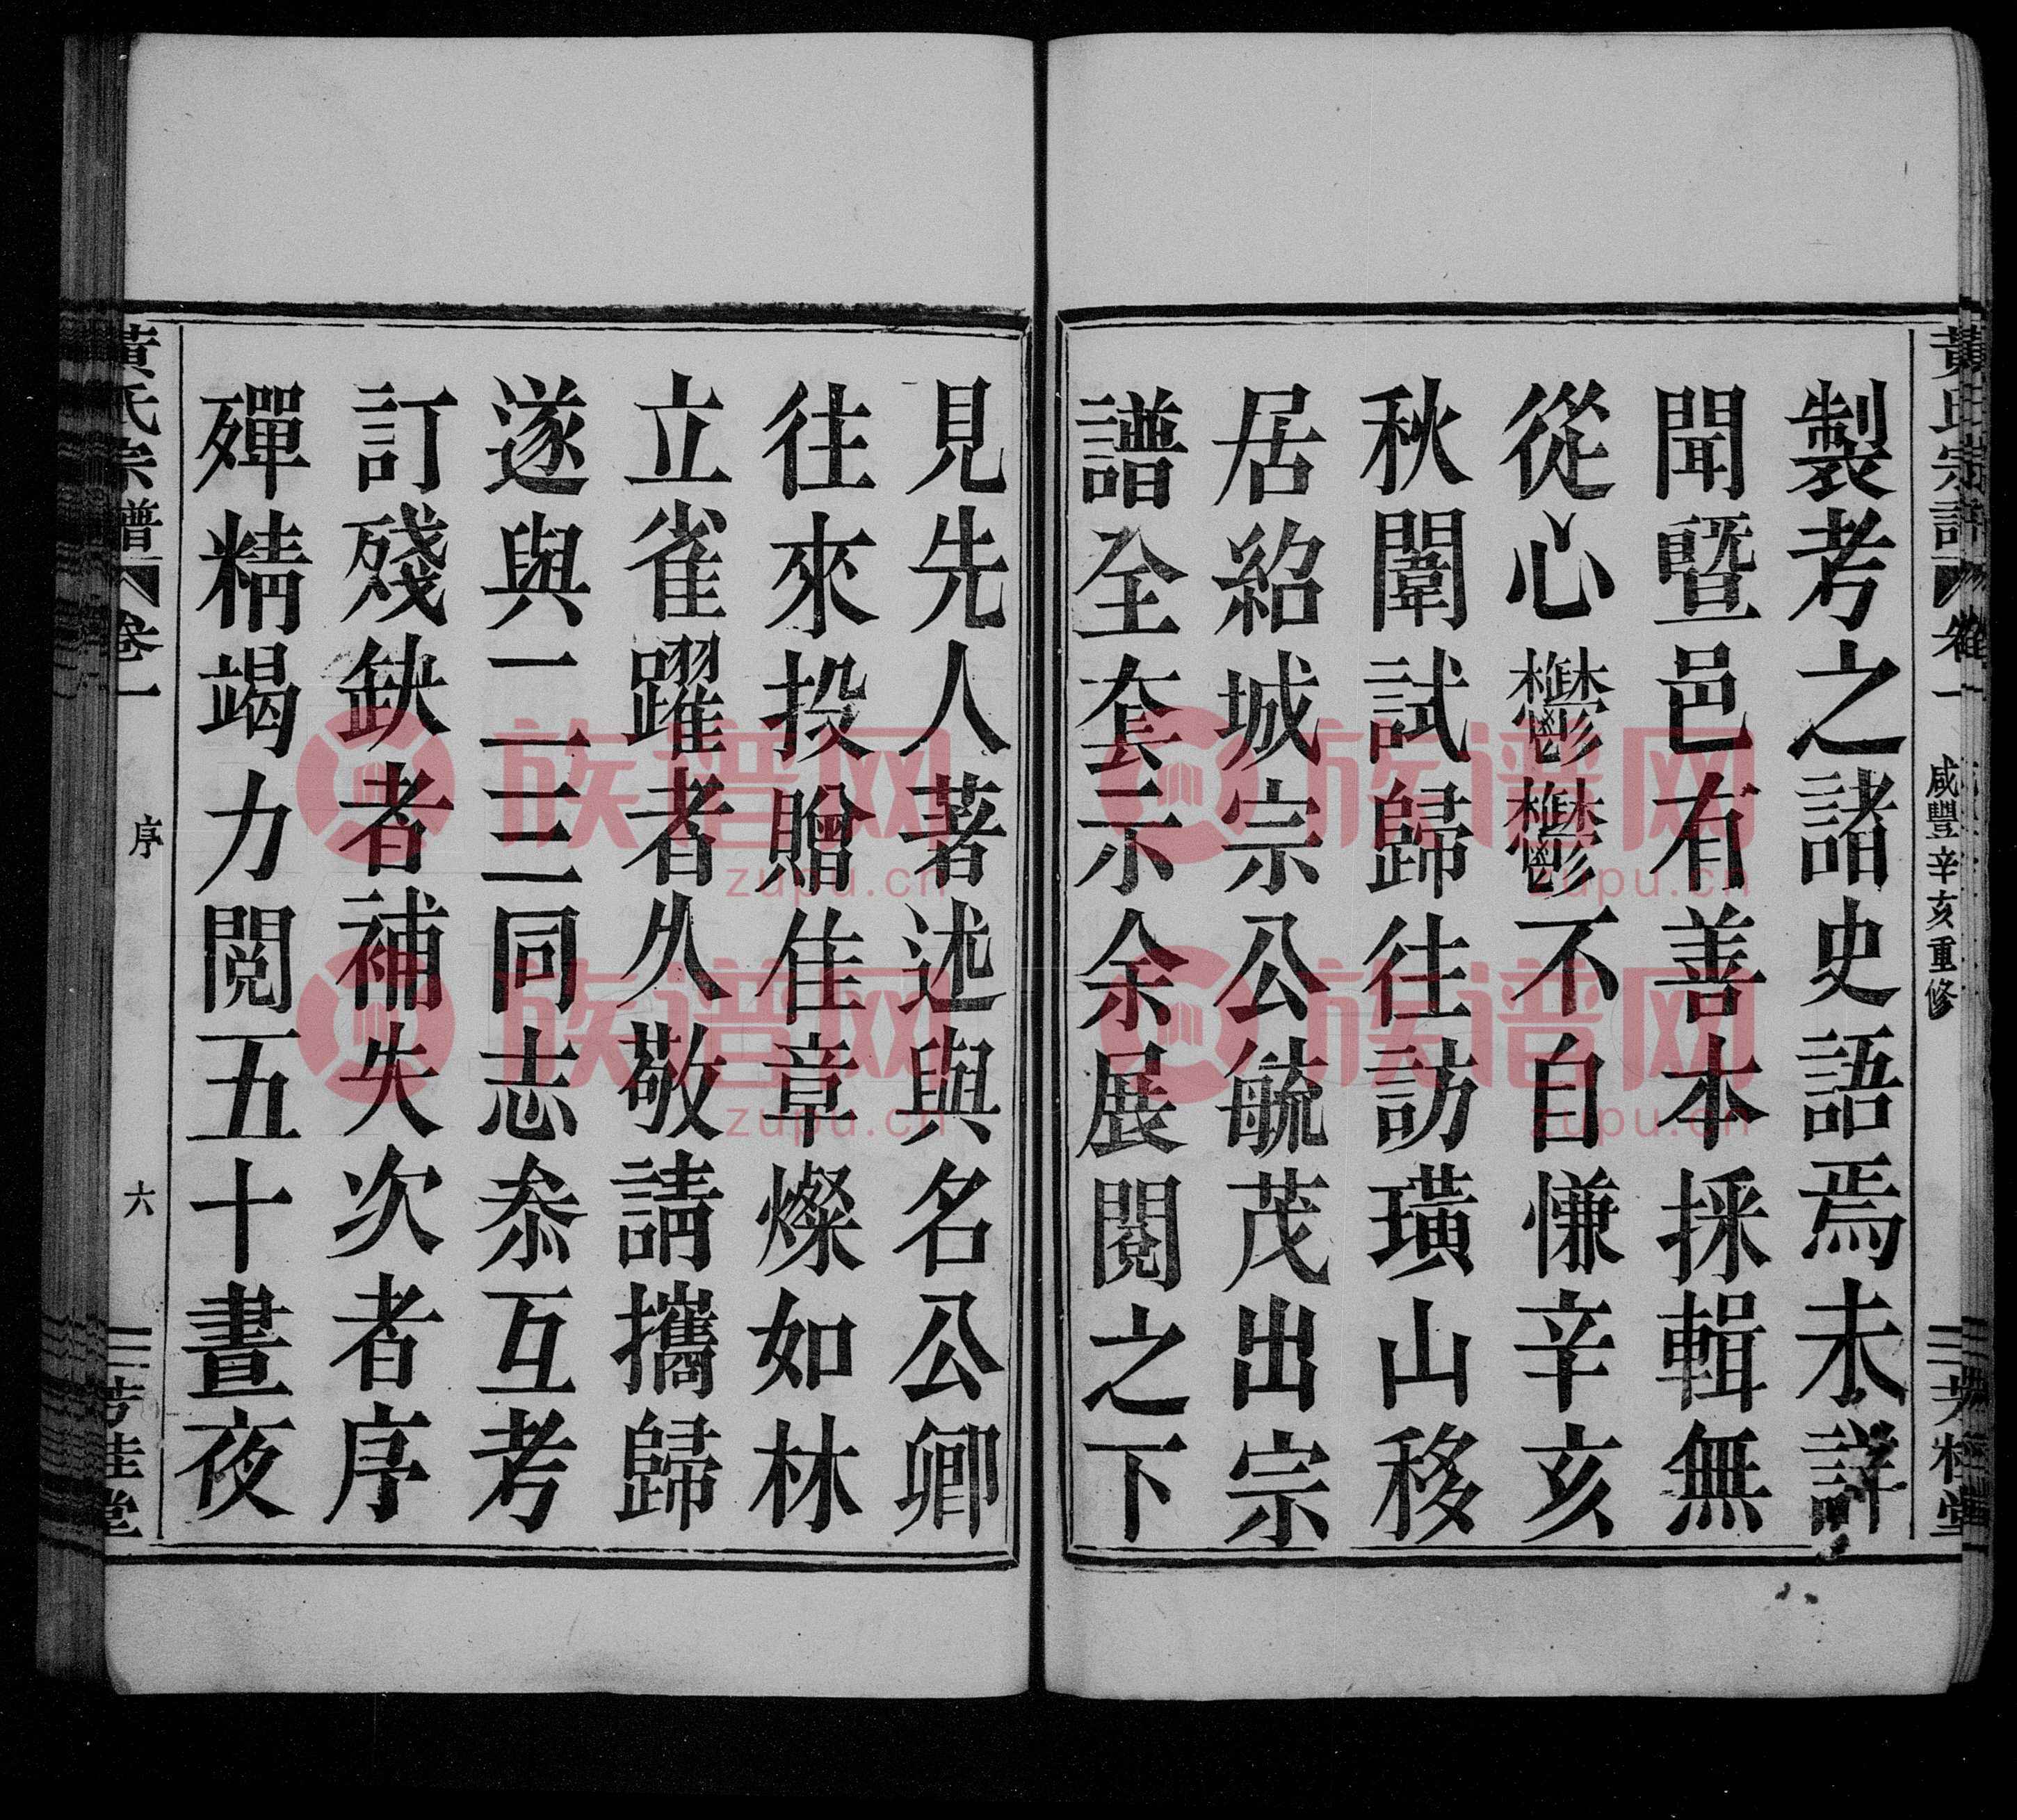 黃氏宗譜 卷一 咸豐辛亥重修 芳桂堂
製考之諸史語焉未詳
聞曁邑有善本採輯無
從心鬱鬱不自慊辛亥
秋闈試歸往訪璜山移
居紹城宗公毓茂出宗
譜全套示余展閱之下
見先人著述與名公卿
往來投贈佳章燦如林
立雀躍者久敬請攜歸
遂與一二三同志叅互考
訂殘缺者補失次者序
殫精竭力閱五十晝夜
黃氏宗譜 卷一 序 六 芳桂堂
族谱网 zupu.cn
族谱网 zupu.cn
族谱网 zupu.cn
族谱网 zupu.cn